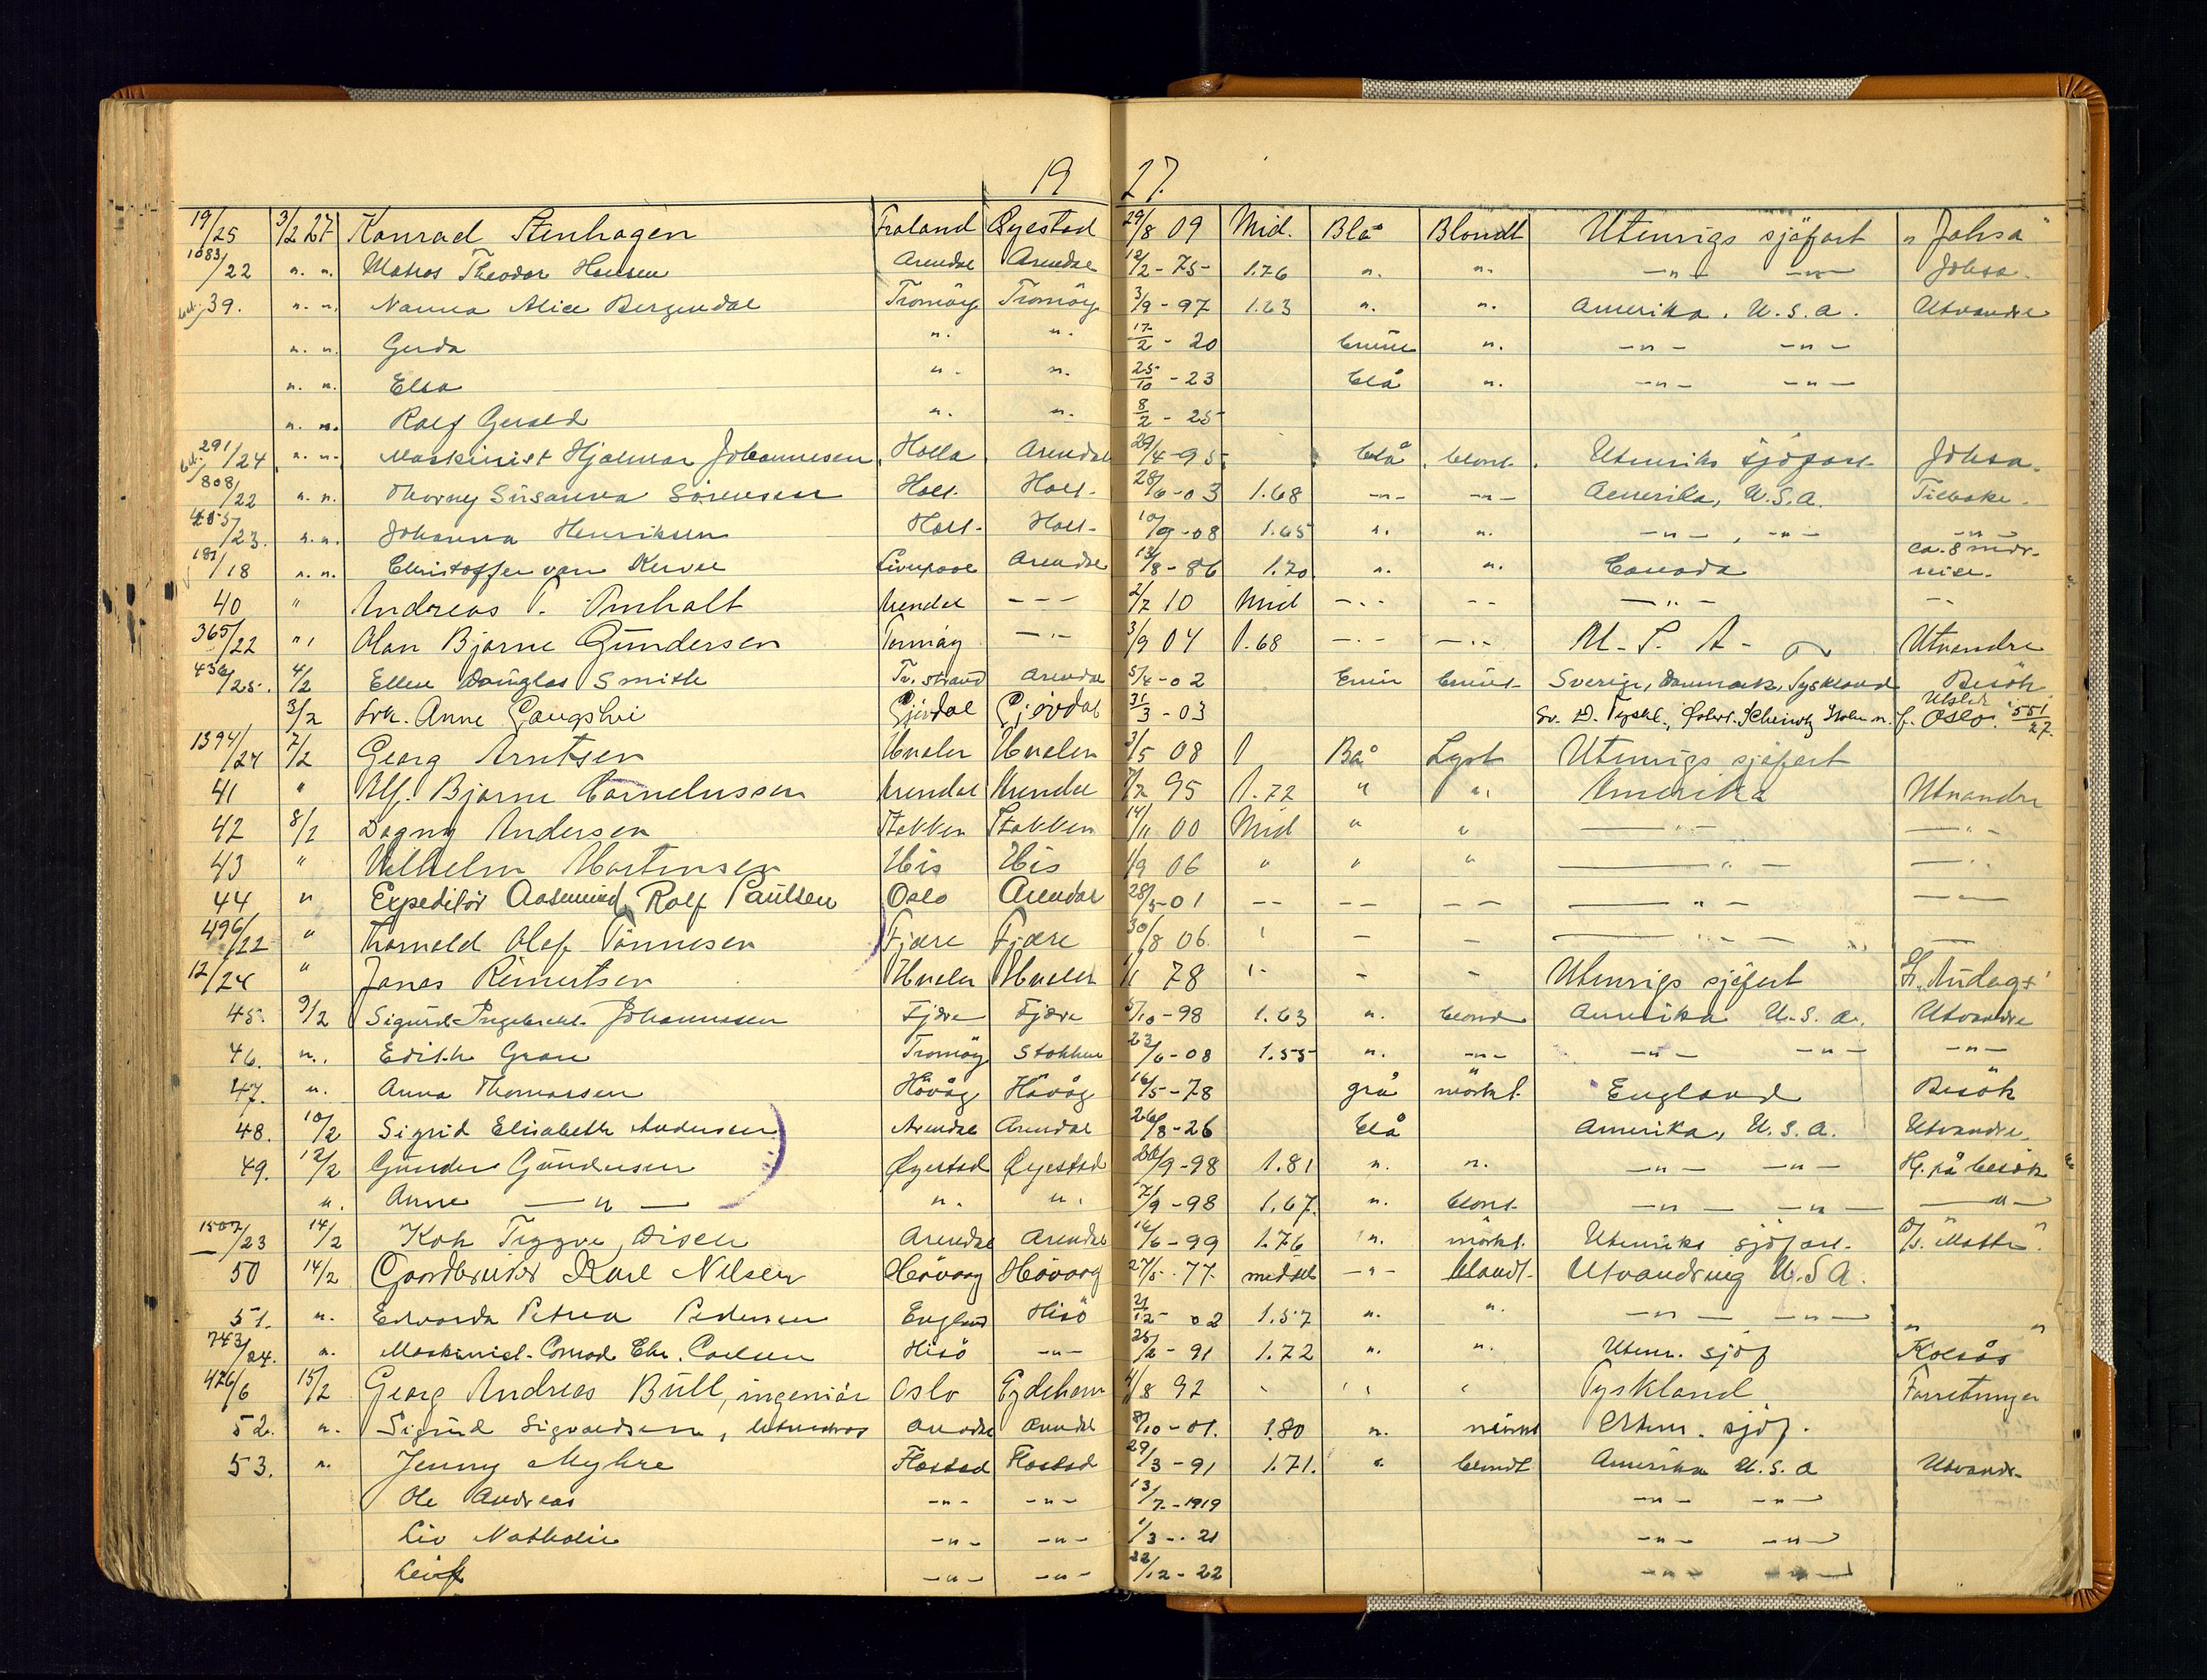 19 27.
19/25 3/2 27 Konrad Stenhagen Froland Øyestad 29/8 09 Mid. Blå Blondt Utenrigs sjöfart "Johsa"
1083/22 " " Matros Theodor Hansen Arendal Arendal 12/2-75 1.76 " " -"- -"- Johsa.
39. " " Nanna Alice Bergendal Tromöy Tromöy 3/9-97 1.63 " " Amerika. U.S.A. Utvandre
" " Gerda " " 17/2-20 brune " -"- -"-
" " Elsa " " 25/10-23 blå " -"- -"-
" " Rolf Gerald " " 8/2-25
291/24 " " Maskinist Hjalmar Johannesen Holla Arendal 29/4-95 blå blont. Utenriks sjöfart Johsa.
808/22 " " Thorny Susanna Sörensen Holt. Holt. 28/6-03 1.68 -"- -"- Amerika, U.S.A. Tilbake.
/23. " " Johanna Henriksen Holt. Holt. 10/9-08 1.65 " " -"-, -"- -"-
181/18 " " Christoffer van Kervel Liverpool Arendal 13/8-86 1.70 " " Canada ca. 8 mdr. reise.
40 " Andreas T. Omholt Arendal --- 2/7 10 Mid -"- -- -"- --
365/22 " Olan Bjarne Gundersen Tromöy -"- 3/9 04 1.68 -"- -"- U.S.A- Utvandre
436/25. 4/2 Ellen Douglas Smith Tv.strand Arendal 5/4-02 brun brunt Sverige, Danmark, Tyskland Besök
3/2 frk. Anne Gaugslri Gjövdal Gjövdal 31/3-03 Sv. D. Tyskl., Utsted f. Oslo. 551/27.
1394/24 7/2 Georg Arntsen Hvaler Hvaler 3/5 08 1 Blå Lyst Utenrigs sjöfart
41 " Alf. Bjarne Cornelussen Arendal Arendal 7/2 95 1.72 " " Amerika Utvandre
42 8/2 Dagny Andersen Stokken Stokken 14/11 00 Mid " " -"- -"-
43 " Vilhelm Martinsen His His 1/9 06 " " " -"- -"-
44 " Expeditör Aasmund Rolf Paulsen Oslo Arendal 28/5-01 -- -- -- -"- --
496/22 " Thorvald Olaf Tönnesen Fjære Fjære 30/8 06. " - - -"- -
12/24 " Jonas Reinertsen Hvaler Hvaler 78 " - - Utenrigs sjöfart
45. 9/2 Sigurd Ingebrekt Johannesen Fjære Fjære 5/10-98 1.63 " blond Amerika U.S.A. Utvandre
46. " Edith Grau Tromöy Stokken 23/6-08 1.55 " -"- -"- -"- -"-
47. " Anna Thomassen Hövåg Hövåg 16/5-78 grå mörkt. England Besök
48. 10/2 Sigrid Elisabeth Andersen Arendal Arendal 26/8-26 blå Amerika, U.S.A. Utvandre.
49. 12/2 Gunder Gundersen Øyestad Øyestad 26/9-98 1.81 " " -"- -"- Hj. på besök
" Anne -"- " " 7/9-98 1.67. " blont. -"- -"- -"-
1507/23 14/2 Kok Trygve Disen Arendal Arendal 16/6-99 1.76 " mörkt. Utenriks sjöfart. D/S. "Matti".
50 14/2 Gaardbruker Karl Nilsen Hövaag Hövaag 27/5-77. middel -"- blondt. Utvandring U.S.A.
51. " Edvarda Petrea Pedersen England Hisö 21/12-02 1.57 " " -"- -"-
743/24. " Maskinist. Conrad Chr. Carlsen Hisö -"- 25/2-91 1.72 " " Utenr. sjöf "Kolsås"
426/6 15/2 Georg Andreas Büll, ingeniør Oslo Eydehavn 4/8 92 " " " Tyskland Forretninger
52. " Sigurd Sigvaldsen, Arendal Arendal 8/10-01. 1.80 " mörkt Utenr. sjöf.
53. " Jenny Myhre Flostad Flostad 29/3-91 1.71. " blondt Amerika U.S.A Utvandr.
Ole Andreas -"- -"- 13/7-1919 -"- -"-
Liv Nathalie -"- -"- 1/3-21 -"- -"-
Leif -"- -"- 22/12-22 -"- -"-